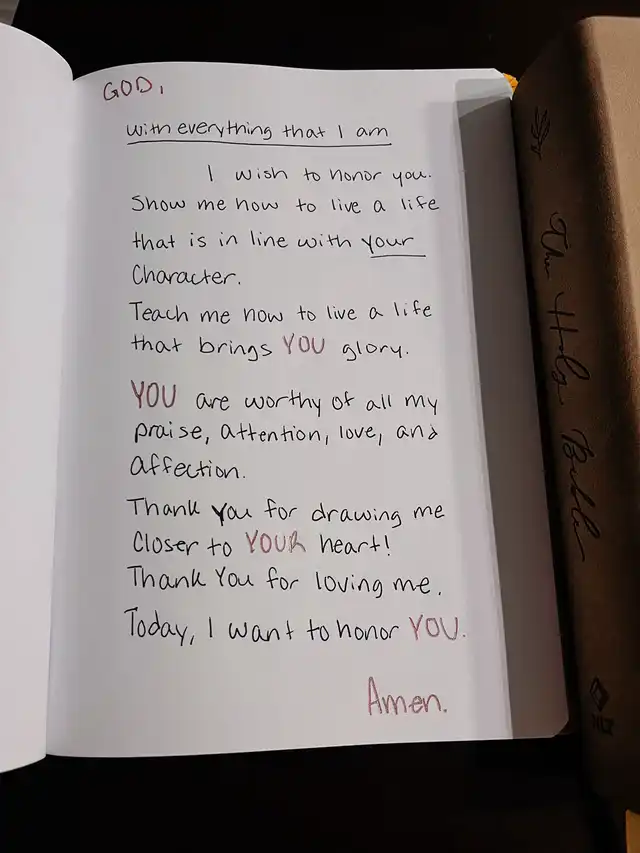 GOD,
with everything that I am
I wish to honor you.
Show me how to live a life
that is in line with your
Character.
Teach me how to live a life
that brings YOU glory.
YOU are worthy of all my
praise, attention, love, and
affection.
Thank you for drawing me
closer to YOUR heart!
Thank You for loving me.
Today, I want to honor YOU.
Amen.
The Holy Bible